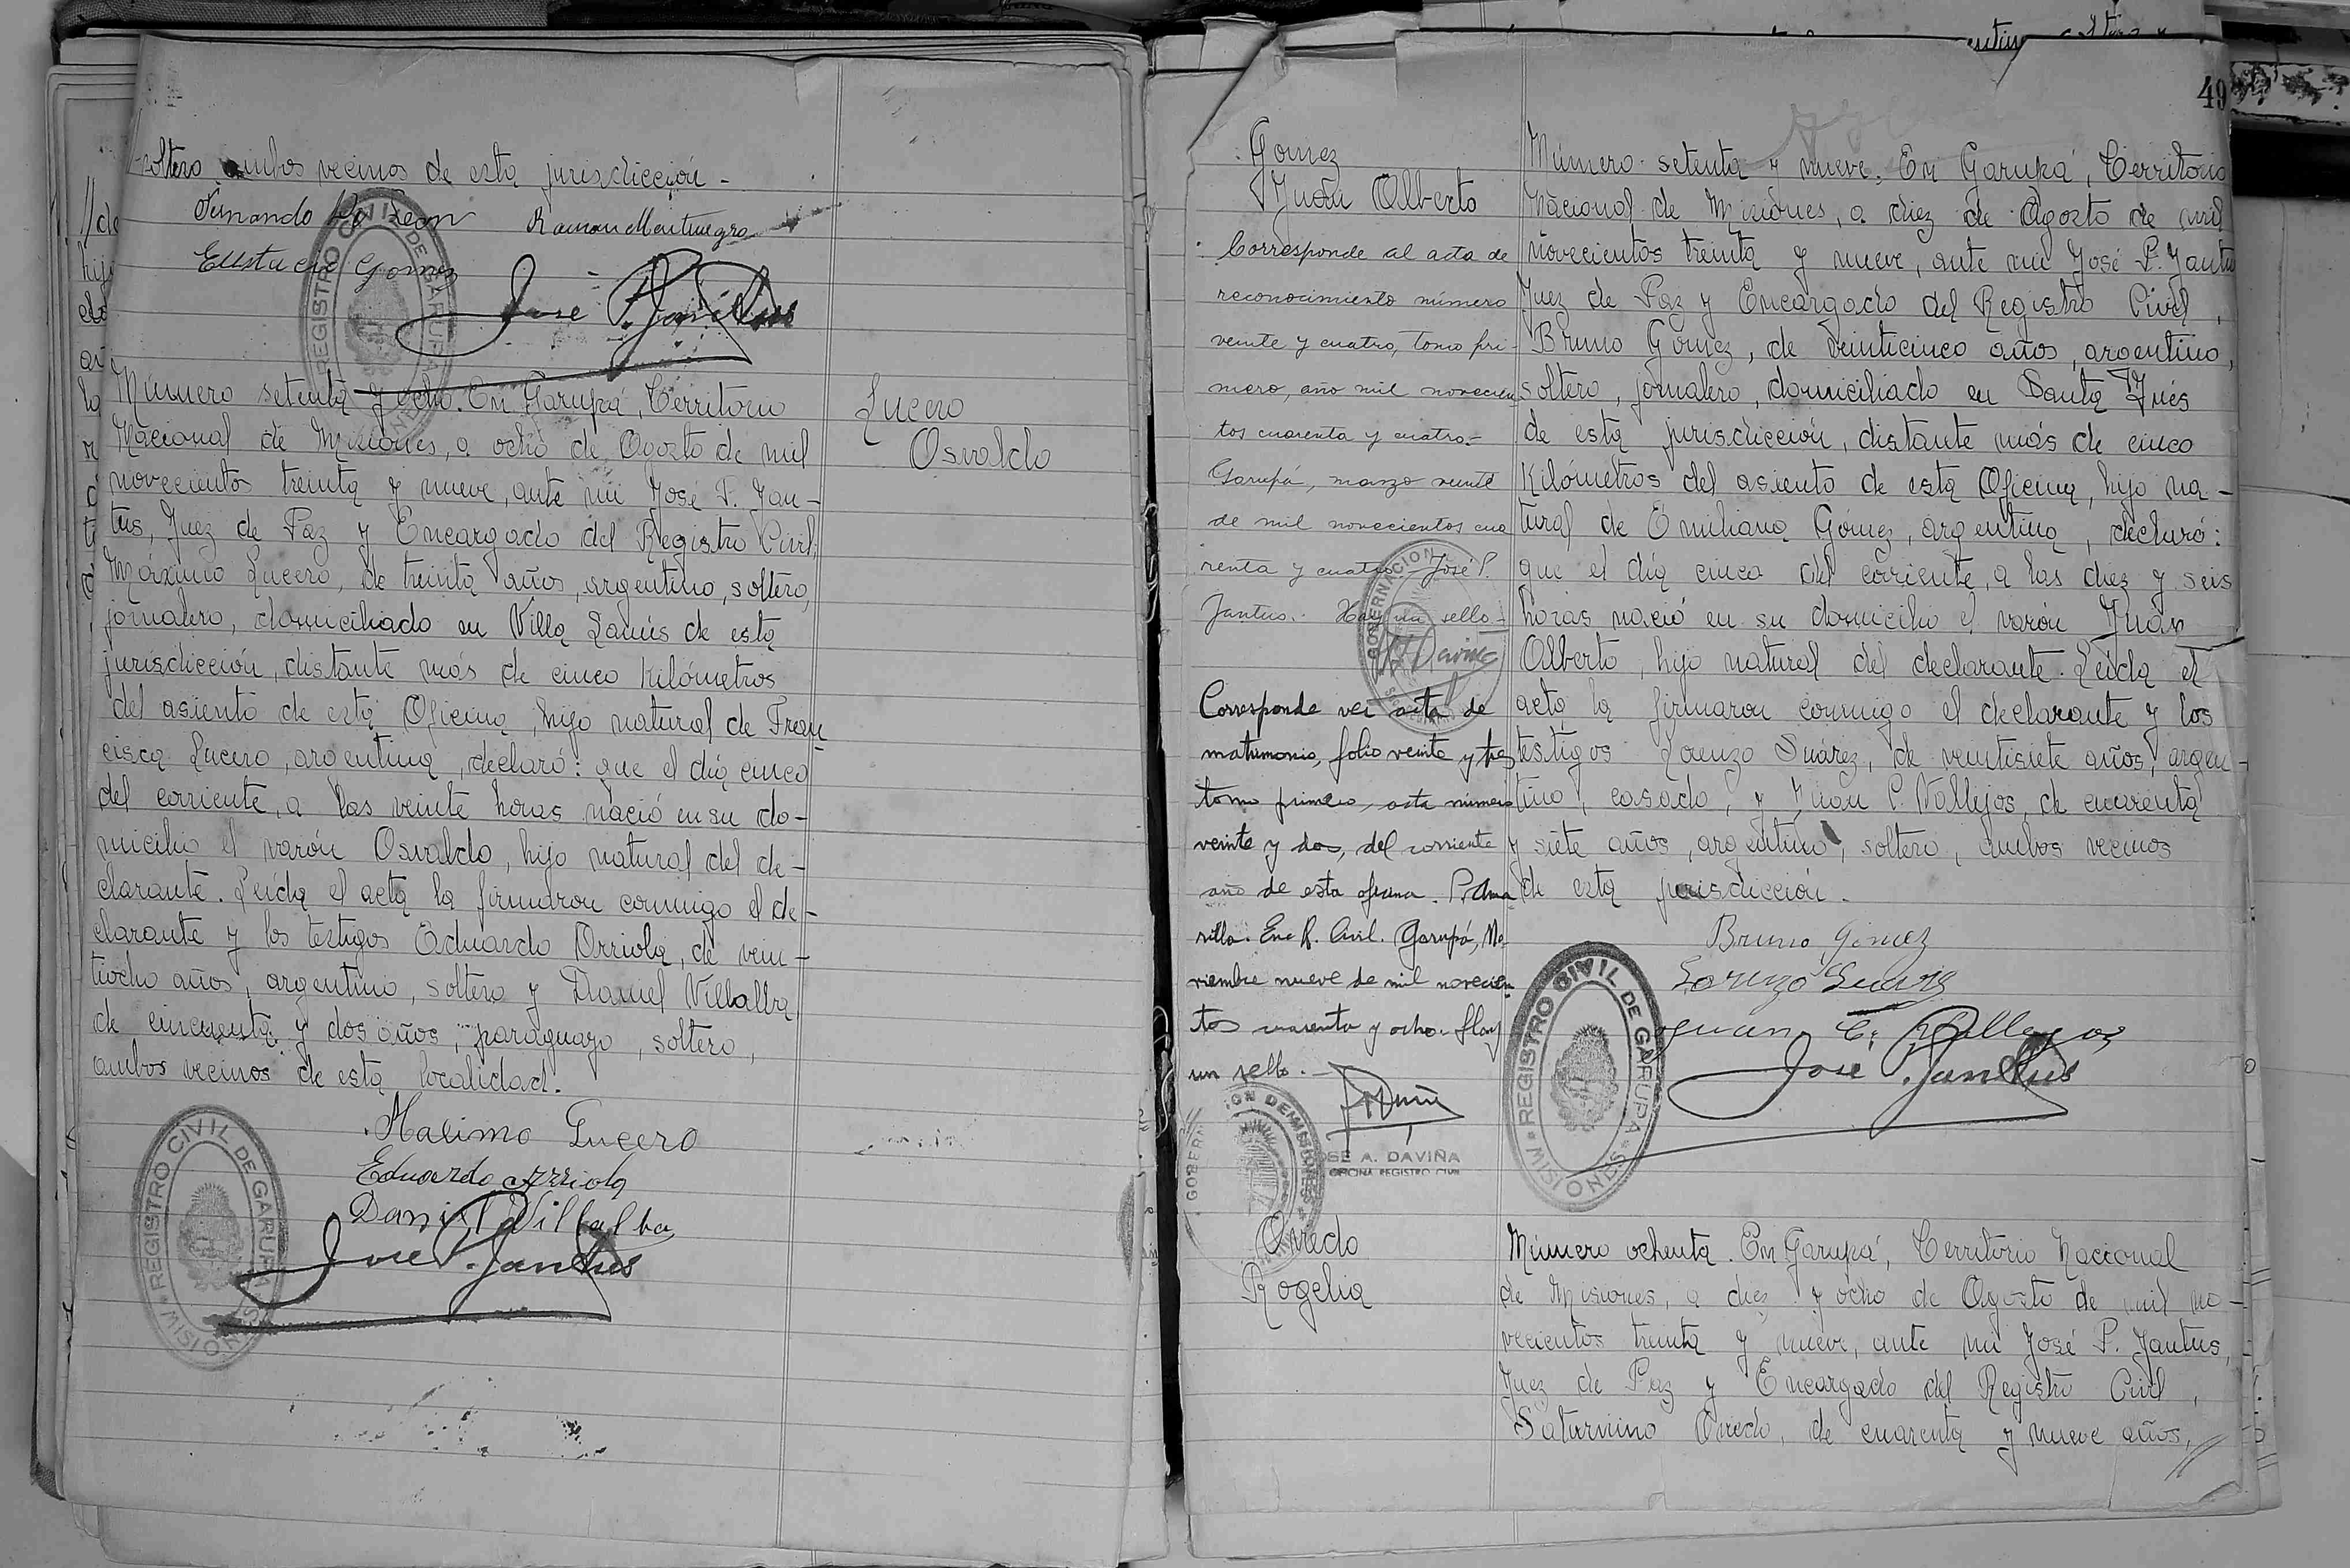 soltero, ambos vecinos de esta jurisdicción -
Fernando De Leon Ramon Montenegro
Eustacio Gomez
José P. Jantus
REGISTRO CIVIL DE GARUPA
Número setenta y ocho. En Garupá, Territorio
Nacional de Misiones, a ocho de Agosto de mil
novecientos treinta y nueve, ante mi José P. Jan-
tus, Juez de Paz y Encargado del Registro Civil,
Máximo Lucero, de treinta años, argentino, soltero,
jornalero, domiciliado en Villa Lanús de esta
jurisdicción, distante más de cinco kilómetros
del asiento de esta Oficina, hijo natural de Fran-
cisca Lucero, argentina, declaró: que el día cinco
del corriente, a las veinte horas nació en su do-
micilio el varón Osvaldo, hijo natural del de-
clarante. Leída el acta la firmaron conmigo el de-
clarante y los testigos Eduardo Orriola, de vein-
tiocho años, argentino, soltero y Daniel Villalba,
de cincuenta y dos años, paraguayo, soltero,
ambos vecinos de esta localidad.
Lucero
Osvaldo
Maximo Lucero
Eduardo Arriola
Daniel Villalba
José P. Jantus
REGISTRO CIVIL DE GARUPA
MISIONES
49
Gomez
Juan Alberto
Corresponde al acta de
reconocimiento número
veinte y cuatro, tomo pri-
mero, año mil novecien
tos cuarenta y cuatro.-
Garupá, marzo veinte
de mil novecientos cua
renta y cuatro José P.
Jantus. Hay un sello -
GOBERNACION
Daviña
Corresponde ver acta de
matrimonio, folio veinte y tres
tomo primero, acta número
veinte y dos, del corriente
año de esta oficina. P. Ama
rilla. Enc R. Civil. Garupá, No-
viembre nueve de mil novecien
tos cuarenta y ocho. Hay
un sello.
JOSE A. DAVIÑA
OFICINA REGISTRO CIVIL
Número setenta y nueve. En Garupá, Territorio
Nacional de Misiones, a diez de Agosto de mil
novecientos treinta y nueve, ante mi José P. Jantus
Juez de Paz y Encargado del Registro Civil,
Bruno Gómez, de veinticinco años, argentino,
soltero, jornalero, domiciliado en Santa Inés
de esta jurisdicción, distante más de cinco
kilómetros del asiento de esta Oficina, hijo na-
tural de Emiliana Gómez, argentina, declaró:
que el día cinco del corriente, a las diez y seis
horas nació en su domicilio el varón Juan
Alberto, hijo natural del declarante. Leída el
acta la firmaron conmigo el declarante y los
testigos Lorenzo Suárez, de veintisiete años, argen-
tino, casado, y Juan C. Vallejos, de cuarenta
y siete años, argentino, soltero, ambos vecinos
de esta jurisdicción.
Bruno Gomez
Lorenzo Suarez
Juan C. Vallejos
José P. Jantus
REGISTRO CIVIL DE GARUPA
MISIONES
Oviedo
Rogelia
Número ochenta. En Garupá, Territorio Nacional
de Misiones, a diez y ocho de Agosto de mil no-
vecientos treinta y nueve, ante mi José P. Jantus,
Juez de Paz y Encargado del Registro Civil,
Saturnino Oviedo, de cuarenta y nueve años,